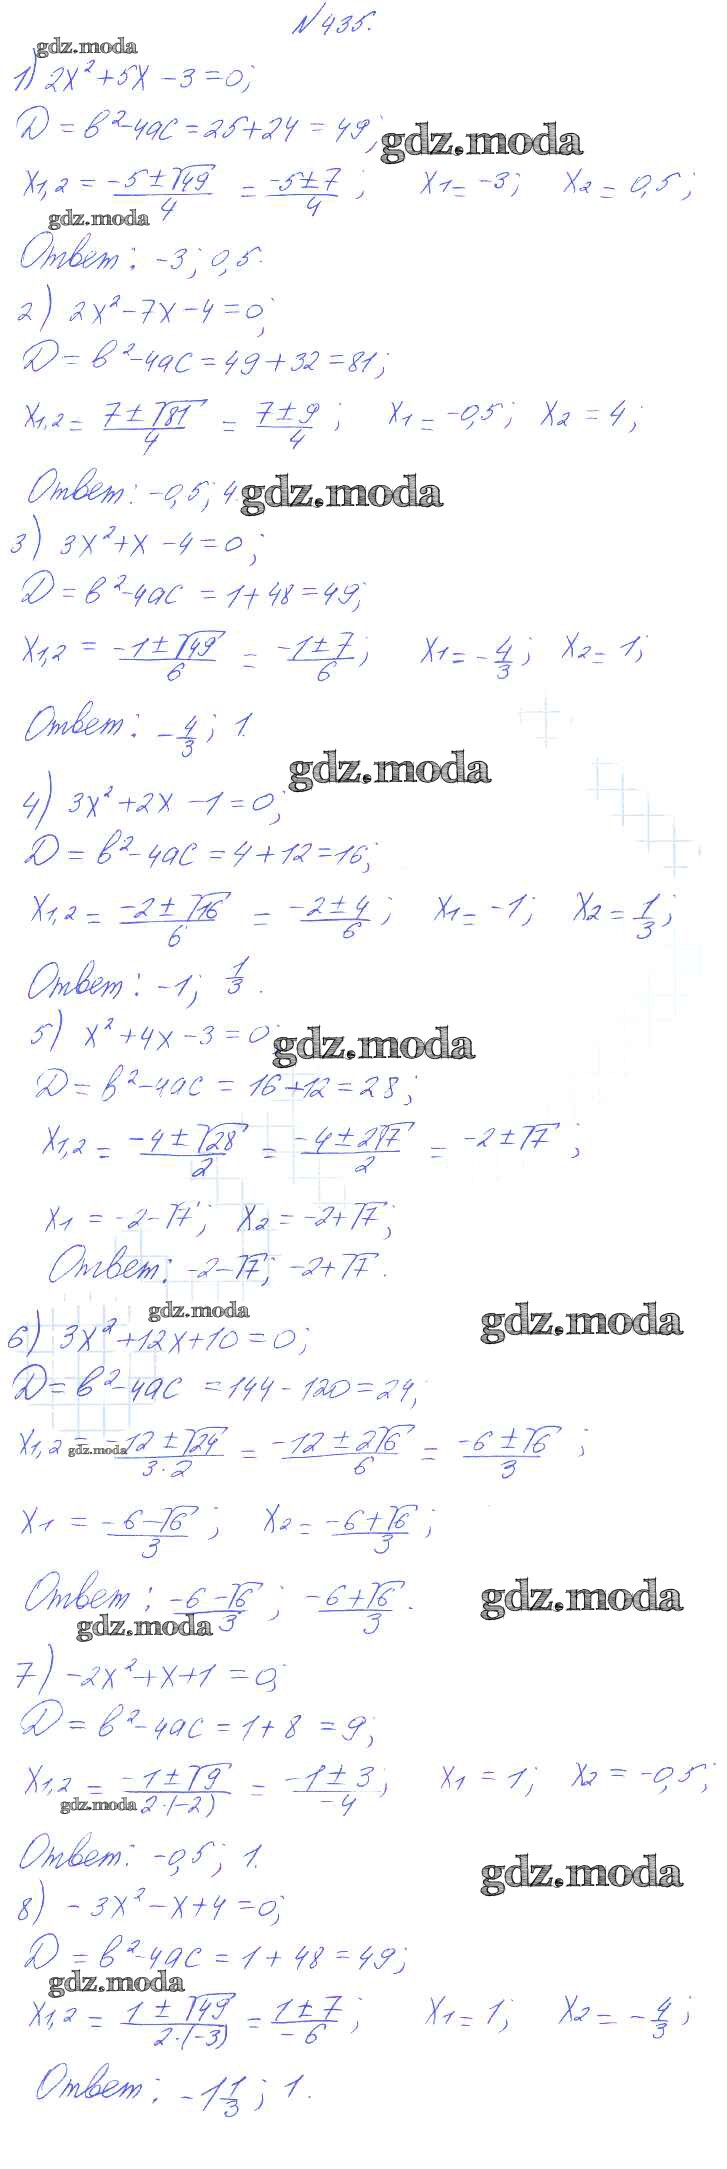 №435.
gdz.moda
1) 2x² + 5x - 3 = 0;
D = b² - 4ac = 25 + 24 = 49;
gdz.moda
x1,2 = (-5 ± √49)/4 = (-5 ± 7)/4; x1 = -3; x2 = 0,5;
gdz.moda
Ответ: -3; 0,5.
2) 2x² - 7x - 4 = 0;
D = b² - 4ac = 49 + 32 = 81;
x1,2 = (7 ± √81)/4 = (7 ± 9)/4; x1 = -0,5; x2 = 4;
Ответ: -0,5; 4.
gdz.moda
3) 3x² + x - 4 = 0;
D = b² - 4ac = 1 + 48 = 49;
x1,2 = (-1 ± √49)/6 = (-1 ± 7)/6; x1 = -4/3; x2 = 1;
Ответ: -4/3; 1.
gdz.moda
4) 3x² + 2x - 1 = 0;
D = b² - 4ac = 4 + 12 = 16;
x1,2 = (-2 ± √16)/6 = (-2 ± 4)/6; x1 = -1; x2 = 1/3;
Ответ: -1; 1/3.
5) x² + 4x - 3 = 0;
gdz.moda
D = b² - 4ac = 16 + 12 = 28;
x1,2 = (-4 ± √28)/2 = (-4 ± 2√7)/2 = -2 ± √7;
x1 = -2 - √7; x2 = -2 + √7;
Ответ: -2 - √7; -2 + √7.
gdz.moda
gdz.moda
6) 3x² + 12x + 10 = 0;
D = b² - 4ac = 144 - 120 = 24;
x1,2 = (-12 ± √24)/(3·2) = (-12 ± 2√6)/6 = (-6 ± √6)/3;
gdz.moda
x1 = (-6 - √6)/3; x2 = (-6 + √6)/3;
Ответ: (-6 - √6)/3; (-6 + √6)/3.
gdz.moda
gdz.moda
7) -2x² + x + 1 = 0;
D = b² - 4ac = 1 + 8 = 9;
x1,2 = (-1 ± √9)/(2·(-2)) = (-1 ± 3)/-4; x1 = 1; x2 = -0,5;
gdz.moda
Ответ: -0,5; 1.
gdz.moda
8) -3x² - x + 4 = 0;
D = b² - 4ac = 1 + 48 = 49;
gdz.moda
x1,2 = (1 ± √49)/(2·(-3)) = (1 ± 7)/-6; x1 = 1; x2 = -4/3;
Ответ: -1 1/3; 1.